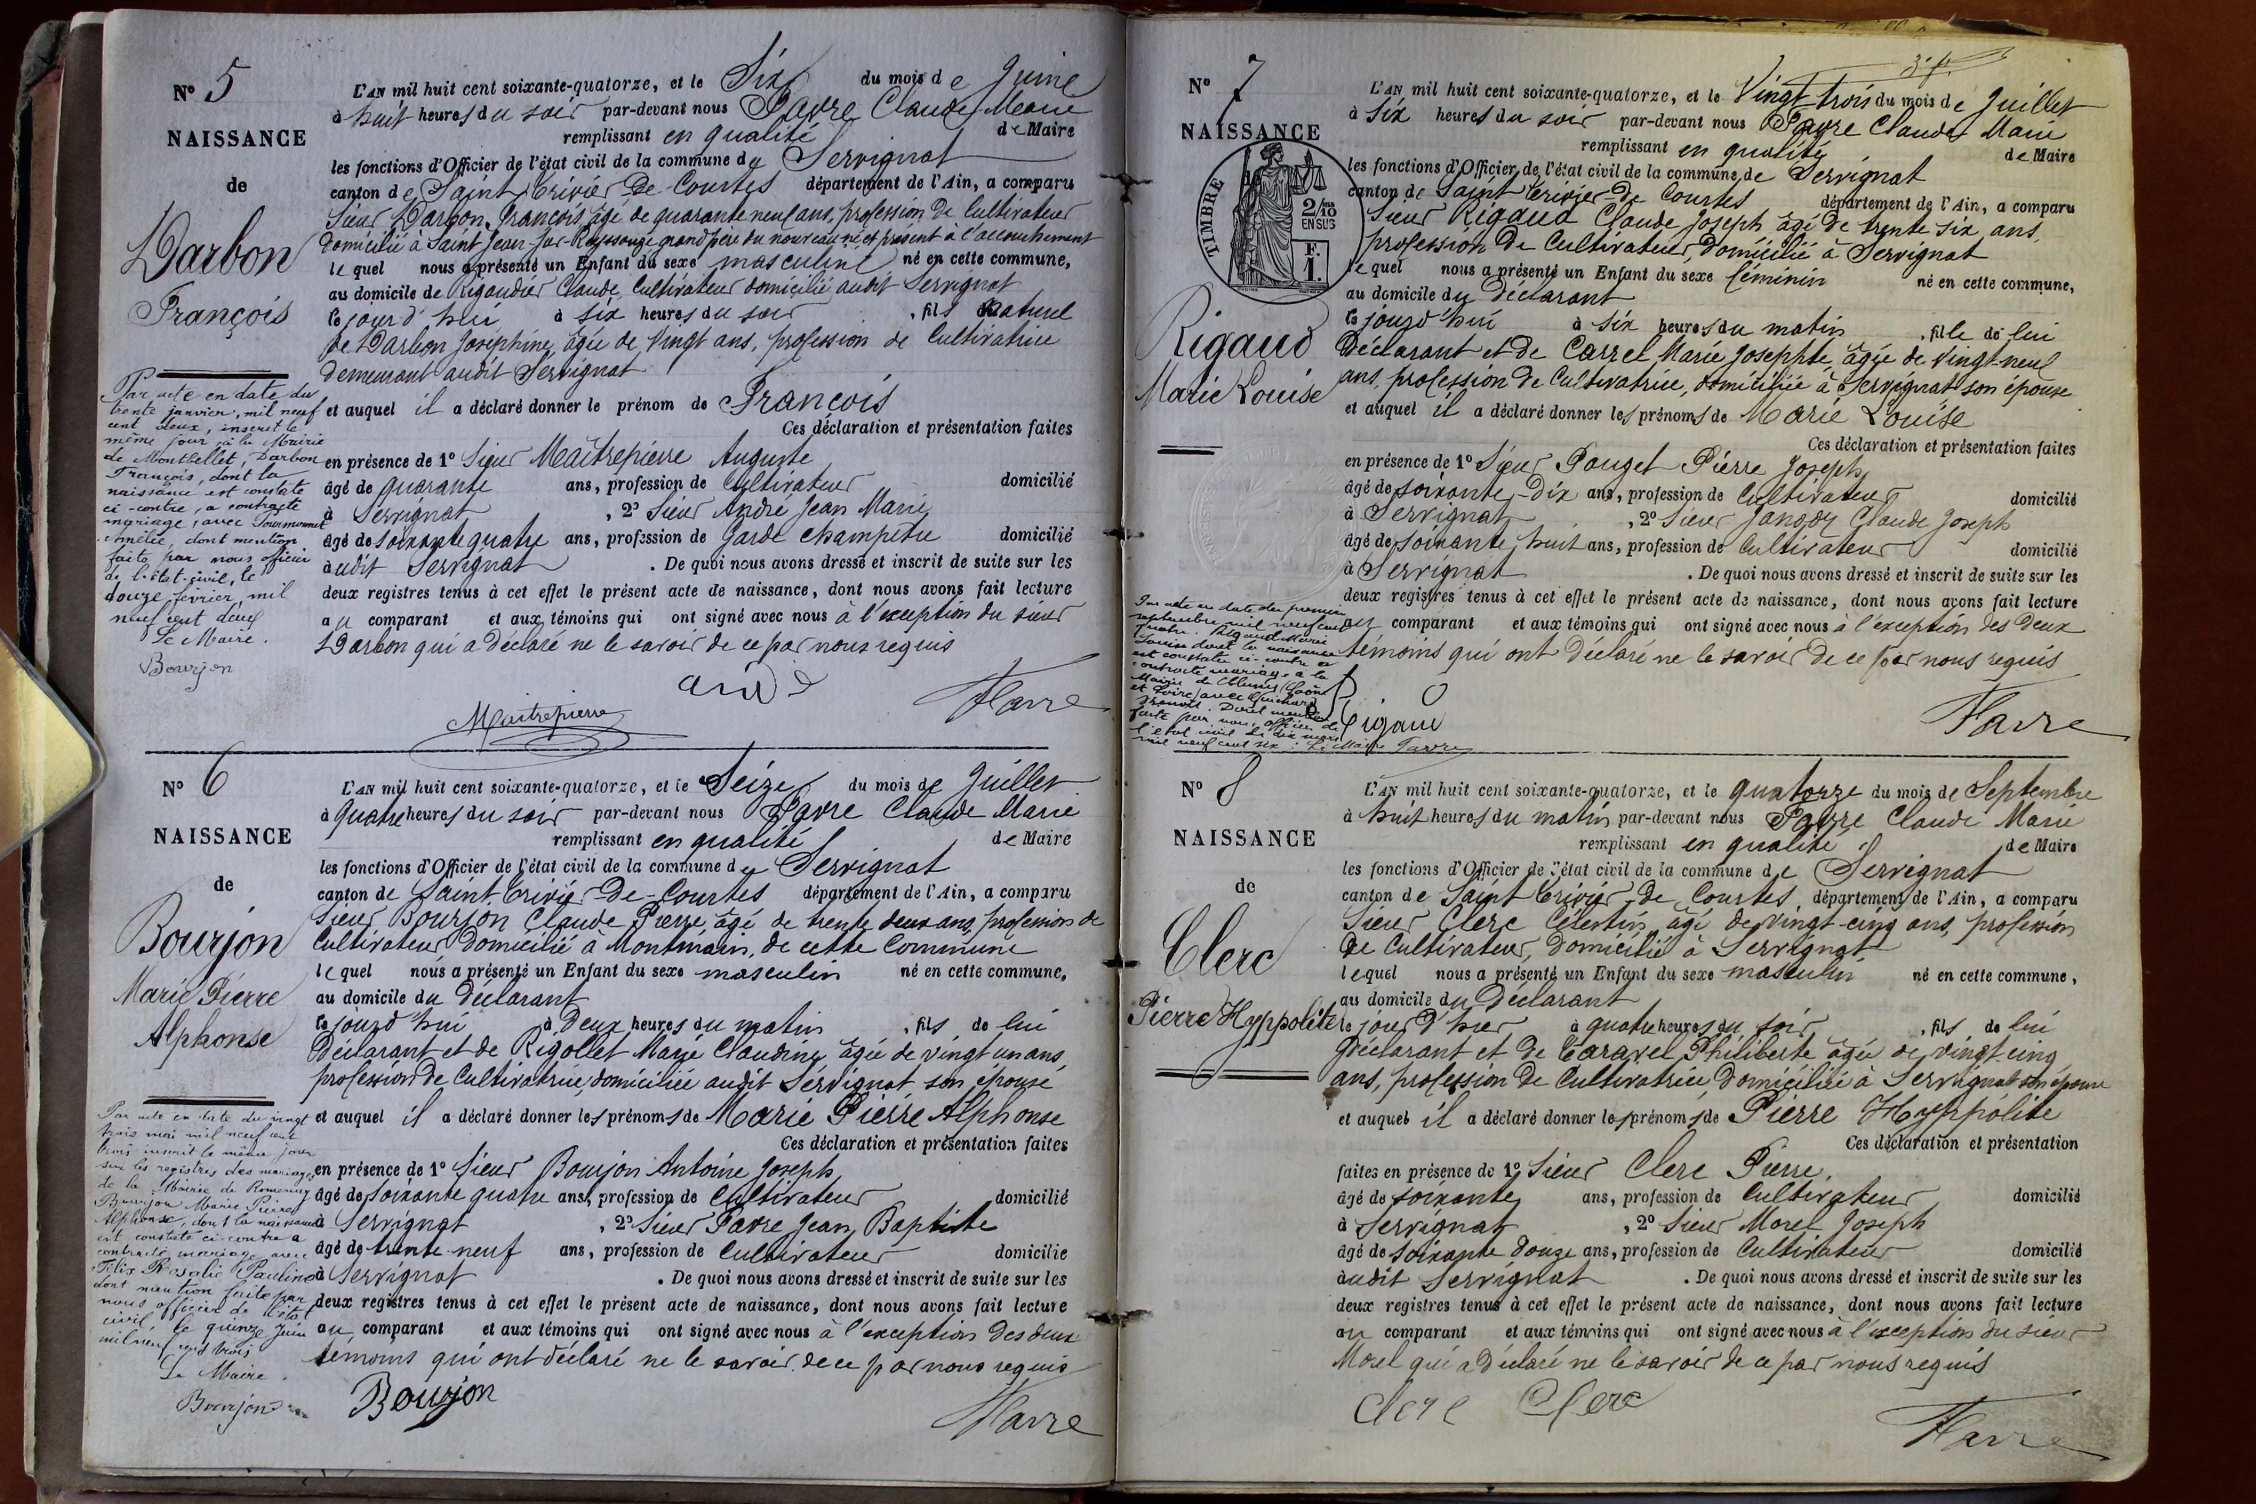 Nº 5
NAISSANCE
de
Darbon
François
L'AN mil huit cent soixante-quatorze, et le Six du mois de Juine
à huit heures du soir par-devant nous Favre Claude Marie
remplissant en qualité de Maire
les fonctions d'Officier de l'état civil de la commune de Servignat
canton de Saint Trivier De Courtes département de l'Ain, a comparu
Sieur Darbon, François âgé de quarante neuf ans, profession De Cultivateur
domicilié à Saint Jean sur Reyssouze grand père du nouveau né et présent à l'accouchement
lequel nous a présenté un Enfant du sexe masculine né en cette commune,
au domicile de Rigaudier Claude, Cultivateur domicilié audit Servignat
le jourd'hui à six heures du soir, fils naturel
de Darbon Joséphine âgée de Vingt ans, profession de Cultivatrice
demeurant audit Servignat
et auquel il a déclaré donner le prénom de François
Ces déclaration et présentation faites
en présence de 1º Sieur Maîtrepierre Auguste
âgé de quarante ans, profession de Cultivateur domicilié
à Servignat, 2º Sieur André Jean Marie
âgé de soixante quatre ans, profession de Garde Champêtre domicilié
audit Servignat. De quoi nous avons dressé et inscrit de suite sur les
deux registres tenus à cet effet le présent acte de naissance, dont nous avons fait lecture
au comparant et aux témoins qui ont signé avec nous à l'exception du sieur
Darbon qui a déclaré ne le savoir de ce par nous requis
Maitrepierre Favre
Par acte en date du
trente janvier, mil neuf
cent deux, inscrit le
même jour à la Mairie
de Montbellet, Darbon
François, dont la
naissance est constatée
ci-contre, a contracté
mariage, avec
Amélie, dont mention
faite par nous officier
de l'état-civil, le
douze février mil
neuf cent deux
Le Maire.
Bourjon
Nº 6
NAISSANCE
de
Bourjon
Marie Pierre
Alphonse
L'AN mil huit cent soixante-quatorze, et le Seize du mois de Juillet
à quatre heures du soir par-devant nous Favre Claude Marie
remplissant en qualité de Maire
les fonctions d'Officier de l'état civil de la commune de Servignat
canton de Saint Trivier De Courtes département de l'Ain, a comparu
Sieur Bourjon Claude Pierre âgé de trente deux ans, profession de
Cultivateur Domicilié à Montmain, de cette Commune
lequel nous a présenté un Enfant du sexe masculin né en cette commune,
au domicile du Déclarant
le jourd'hui à Deux heures du matin, fils de lui
Déclarant et de Rigollet Marie Claudine âgée de vingt un ans
profession de Cultivatrice, domiciliée audit Servignat son épouse
et auquel il a déclaré donner les prénoms de Marie Pierre Alphonse
Ces déclaration et présentation faites
en présence de 1º Sieur Bourjon Antoine Joseph
âgé de soixante quatre ans, profession de Cultivateur domicilié
à Servignat, 2º Sieur Favre Jean Baptiste
âgé de trente neuf ans, profession de Cultivateur domicilié
à Servignat. De quoi nous avons dressé et inscrit de suite sur les
deux registres tenus à cet effet le présent acte de naissance, dont nous avons fait lecture
au comparant et aux témoins qui ont signé avec nous à l'exception Des deux
témoins qui ont déclaré ne le savoir de ce par nous requis
Bourjon Favre
Par acte en date du vingt
trois mai mil neuf cent
trois inscrit le même jour
sur les registres des mariages
de la Mairie de Romenay
Bourjon Marie Pierre
Alphonse, dont la naissance
est constatée ci-contre a
contracté mariage avec
Félix Rosalie Pauline
dont mention faite par
nous officier de l'état
civil, le quinze juin
mil neuf cent trois
Le Maire.
Bourjon
3e f.
Nº 7
NAISSANCE
TIMBRE
2/10
EN SUS
F.
1.
Rigaud
Marie Louise
L'AN mil huit cent soixante-quatorze, et le Vingt trois du mois de Juillet
à six heures du soir par-devant nous Favre Claude Marie
remplissant en qualité de Maire
les fonctions d'Officier de l'état civil de la commune de Servignat
canton de Saint Trivier De Courtes département de l'Ain, a comparu
Sieur Rigaud Claude Joseph âgé de trente six ans,
profession De Cultivateur, Domicilié à Servignat
lequel nous a présenté un Enfant du sexe féminin né en cette commune,
au domicile du Déclarant
le jourd'hui à six heures du matin, fille de lui
Déclarant et de Carrel Marie Josephte âgée de vingt-neuf
ans, profession De Cultivatrice, domiciliée à Servignat son épouse
et auquel il a déclaré donner les prénoms de Marie Louise
Ces déclaration et présentation faites
en présence de 1º Sieur Pouget Pierre Joseph
âgé de soixante-Dix ans, profession de Cultivateur domicilié
à Servignat, 2º Sieur Claude Joseph
âgé de soixante huit ans, profession de Cultivateur domicilié
à Servignat. De quoi nous avons dressé et inscrit de suite sur les
deux registres tenus à cet effet le présent acte de naissance, dont nous avons fait lecture
au comparant et aux témoins qui ont signé avec nous à l'exception des Deux
témoins qui ont Déclaré ne le savoir De ce par nous requis
Rigaud Favre
Par acte en date du premier
septembre mil neuf cent
quatre. Rigaud Marie
Louise dont la naissance
est constatée ci-contre a
contracté mariage à la
Mairie de (Saône
et Loire) avec Guichard
. Dont mention
faite par nous, officier de
l'état civil le dix mars
mil neuf cent six. Le Maire Favre
Nº 8
NAISSANCE
de
Clerc
Pierre Hyppolite
L'AN mil huit cent soixante-quatorze, et le quatorze du mois de Septembre
à huit heures du matin par-devant nous Favre Claude Marie
remplissant en qualité de Maire
les fonctions d'Officier de l'état civil de la commune de Servignat
canton de Saint Trivier De Courtes département de l'Ain, a comparu
Sieur Clerc Célestin âgé de vingt-cinq ans, profession
De Cultivateur, Domicilié à Servignat
lequel nous a présenté un Enfant du sexe masculin né en cette commune,
au domicile du Déclarant
le jour d'hier à quatre heures du soir, fils de lui
Déclarant et De Caravel Philiberte âgée de vingt cinq
ans, profession De Cultivatrice Domiciliée à Servignat son épouse
et auquel il a déclaré donner les prénoms de Pierre Hyppolite
Ces déclaration et présentation
faites en présence de 1º Sieur Clerc Pierre
âgé de soixante ans, profession de Cultivateur domicilié
à Servignat, 2º Sieur Morel Joseph
âgé de soixante Douze ans, profession de Cultivateur domicilié
audit Servignat. De quoi nous avons dressé et inscrit de suite sur les
deux registres tenus à cet effet le présent acte de naissance, dont nous avons fait lecture
au comparant et aux témoins qui ont signé avec nous à l'exception du sieur
Morel qui a Déclaré ne le savoir de ce par nous requis
Clerc Clerc
Favre